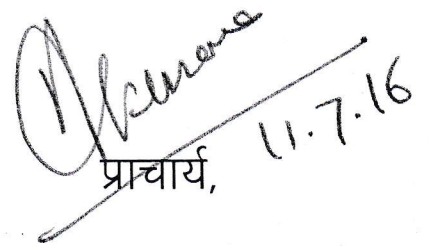 11.7.16
प्राचार्य,